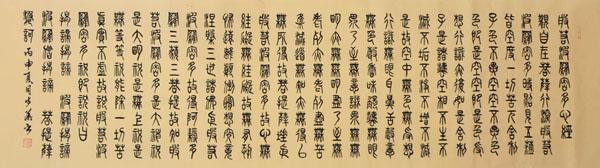 般若波羅密多心經
觀自在菩薩行深般若
波羅密多時照見五蘊
皆空度一切苦厄舍利
子色不異空空不異色
色即是空空即是色受
想行識亦復如是舍利
子是諸法空相不生不
滅不垢不淨不增不減
是故空中無色無受想
行識無眼耳鼻舌身意
無色聲香味觸法無眼
界乃至無意識界無無
明亦無無明盡乃至無
老死亦無老死盡無苦
集滅道無智亦無得以
無所得故菩提薩埵依
般若波羅密多故心無
罣礙無罣礙故無有恐
怖遠離顛倒夢想究竟
涅槃三世諸佛依般若
波羅密多故得阿耨多
羅三藐三菩提故知般
若波羅密多是大神咒
是大明咒是無上咒是
無等等咒能除一切苦
真實不虛故說般若波
羅密多咒即說咒曰
揭諦揭諦 波羅揭諦
波羅僧揭諦 菩提薩
婆訶 丙申夏月